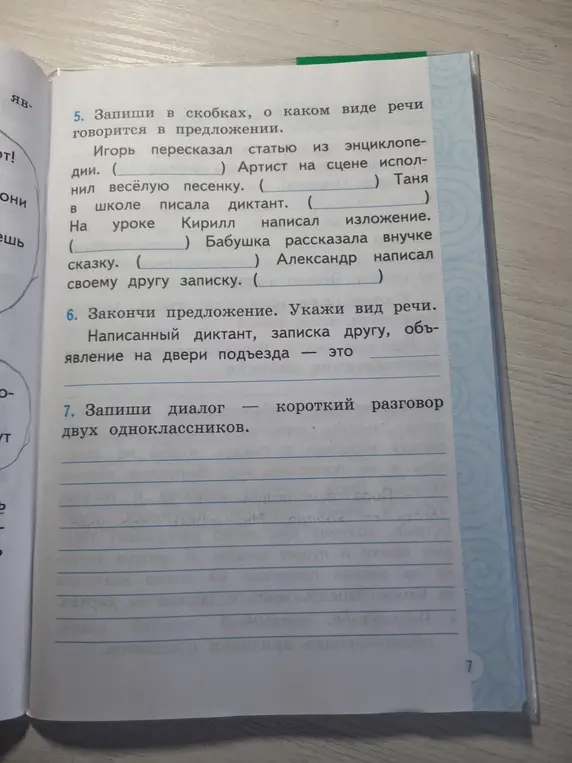 яв-
от!
они
ешь
о-
ут
ь
5. Запиши в скобках, о каком виде речи
говорится в предложении.
Игорь пересказал статью из энциклопе-
дии. (____________) Артист на сцене испол-
нил весёлую песенку. (____________) Таня
в школе писала диктант. (____________)
На уроке Кирилл написал изложение.
(____________) Бабушка рассказала внучке
сказку. (____________) Александр написал
своему другу записку. (____________)
6. Закончи предложение. Укажи вид речи.
Написанный диктант, записка другу, объ-
явление на двери подъезда — это ________
7. Запиши диалог — короткий разговор
двух одноклассников.
7